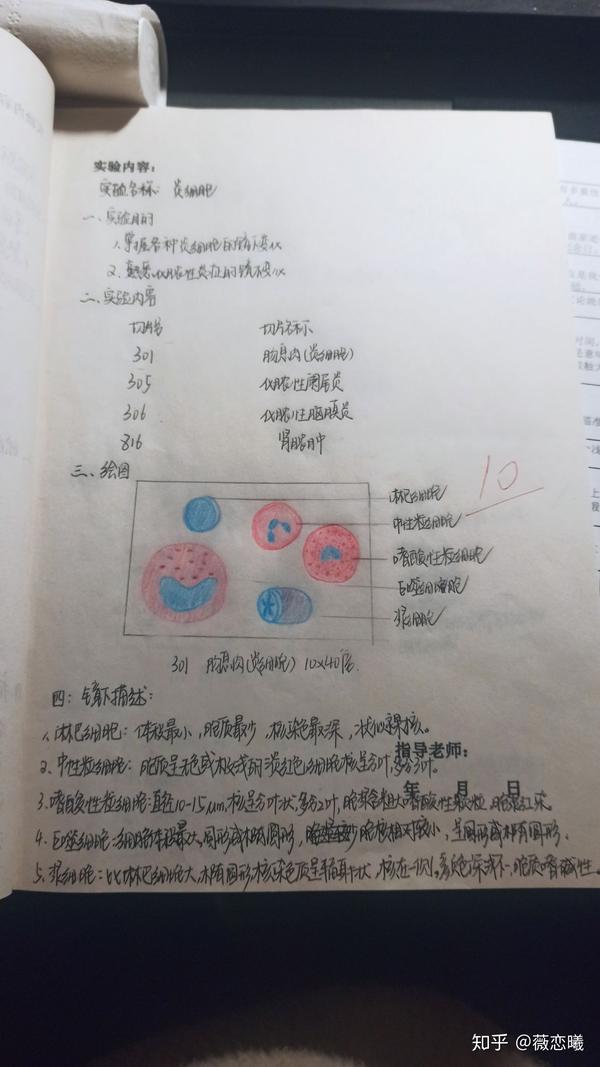 实验内容:
实验名称: 炎细胞
一、实验目的
1. 掌握各种炎细胞的镜下变化
2. 熟悉化脓性炎症的镜下变化
二、实验内容
切片号 切片名称
301 肠息肉(炎细胞)
305 化脓性阑尾炎
306 化脓性脑膜炎
816 肾脓肿
三、绘图
10
淋巴细胞
中性粒细胞
嗜酸性粒细胞
巨噬细胞
浆细胞
301 肠息肉(炎细胞) 10×40倍.
四: 镜下描述:
1. 淋巴细胞: 体积最小, 胞质最少, 核染色最深, 状似裸核。
指导老师:
2. 中性粒细胞: 胞质呈无色或极浅的淡红色, 细胞核呈分叶, 多分叶。
年 月 日
3. 嗜酸性粒细胞: 直径10-15μm, 核呈分叶状, 多分2叶, 胞浆含粗大嗜酸性颗粒, 胞浆红染
4. 巨噬细胞: 细胞体积最大, 圆形或椭圆形, 胞核相对较小, 呈圆形或椭圆形.
5. 浆细胞: 比淋巴细胞大, 椭圆形, 核染色质呈辐射状, 核在一侧, 胞质嗜碱性。
知乎 @薇恋曦